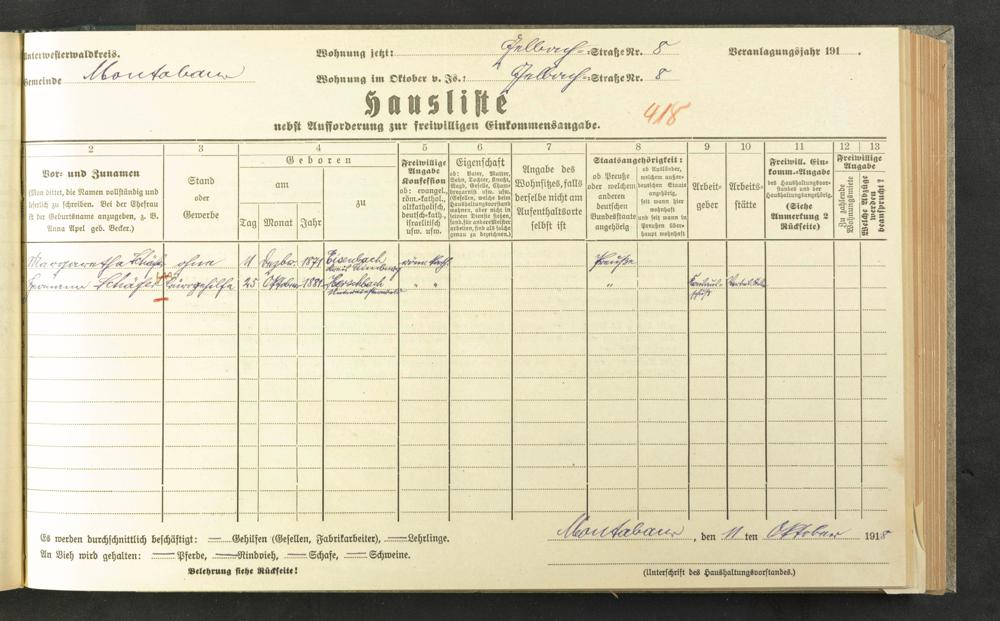 Unterwesterwaldkreis.
Wohnung jetzt: Gelbach-Straße Nr. 8
Veranlagungsjahr 191 .
Gemeinde Montabaur
Wohnung im Oktober v. Js.: Gelbach-Straße Nr. 8
Hausliste
418
nebst Aufforderung zur freiwilligen Einkommensangabe.
2 3 4 5 6 7 8 9 10 11 12 13
Vor- und Zunamen
(Man bittet, die Namen vollständig und
leserlich zu schreiben. Bei der Ehefrau
ist der Geburtsname anzugeben, z. B.
Anna Apel geb. Becker.)
Stand
oder
Gewerbe
Geboren
am
zu
Tag Monat Jahr
Freiwillige
Angabe
Konfession
ob: evangel.,
röm.-kathol.,
altkatholisch,
deutsch-kath.,
israelitisch
usw. usw.
Eigenschaft
ob: Vater, Mutter,
Sohn, Tochter, Knecht,
Magd, Geselle, Cham-
bregarnist usw. usw.
(Gesellen, welche beim
Haushaltungsvorstand
wohnen, aber nicht in
seinem Dienste stehen,
sond. für andere Meister
arbeiten, sind als solche
genau zu bezeichnen.)
Angabe des
Wohnsitzes, falls
derselbe nicht am
Aufenthaltsorte
selbst ist
Staatsangehörigkeit:
ob Preuße
oder welchem
anderen
deutschen
Bundesstaate
angehörig
ob Ausländer,
welchem außer-
deutschen Staate
angehörig,
seit wann hier
wohnhaft
und seit wann in
Preußen über-
haupt wohnhaft
Arbeit-
geber
Arbeits-
stätte
Freiwill. Ein-
komm.-Angabe
des Haushaltungsvor-
standes und der
Haushaltungsangehörig.
(Siehe
Anmerkung 2
Rückseite)
Freiwillige
Angabe
Zu zahlende
Wohnungsmiete
Welche Abzüge
werden
beansprucht?
Margaretha Schäfer ohne 11 Dezbr. 1871 Eisenbach röm. kath. Preuße
Kreis Limburg
Hermann Schäfer Bürogehilfe 25 Oktober 1881 Herschbach " " "
Es werden durchschnittlich beschäftigt: — Gehilfen (Gesellen, Fabrikarbeiter), — Lehrlinge.
An Vieh wird gehalten: — Pferde, — Rindvieh, — Schafe, — Schweine.
Belehrung siehe Rückseite!
Montabaur, den 11 ten Oktober 1918
(Unterschrift des Haushaltungsvorstandes.)